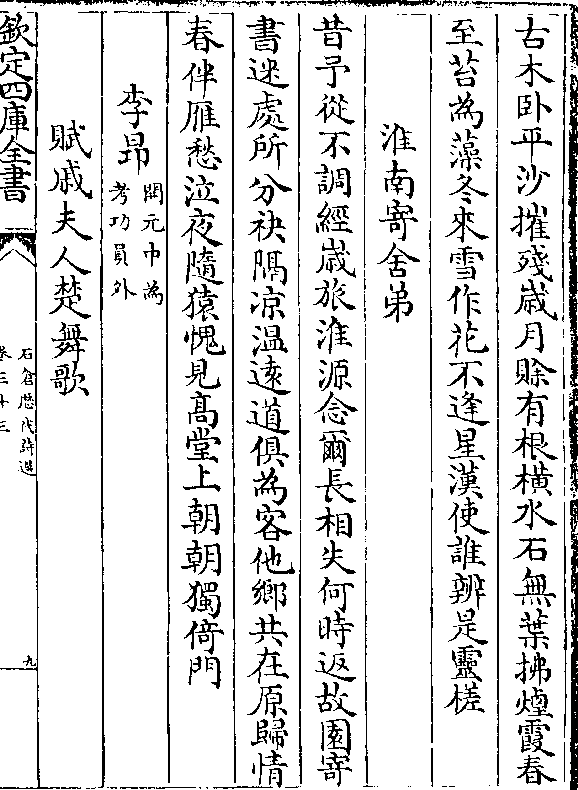 古木卧平沙摧殘歳月賖有根橫水石無葉拂煙霞春
至苔為藻冬來雪作花不逢星漢使誰辨是靈槎
淮南寄舍弟
昔予從不調經歳旅淮源念爾長相失何時返故園寄
書迷處所分袂隔凉溫逺道俱為客他鄉共在原歸情
春伴雁愁泣夜隨猿愧見髙堂上朝朝獨倚門
李昂
開元中為
考功員外
賦戚夫人楚舞歌
欽定四庫全書
石倉歴代詩選
卷三十三
九